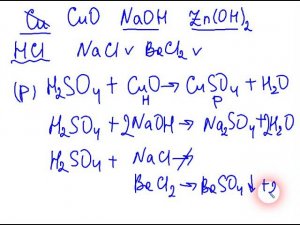 Cu CuO NaOH Zn(OH)₂
HCl NaCl v BaCl₂ v
(p) H₂SO₄ + CuO → CuSO₄ + H₂O
H P
H₂SO₄ + 2NaOH → Na₂SO₄ + 2H₂O
H₂SO₄ + NaCl ↛
BaCl₂ → BaSO₄↓ + 2